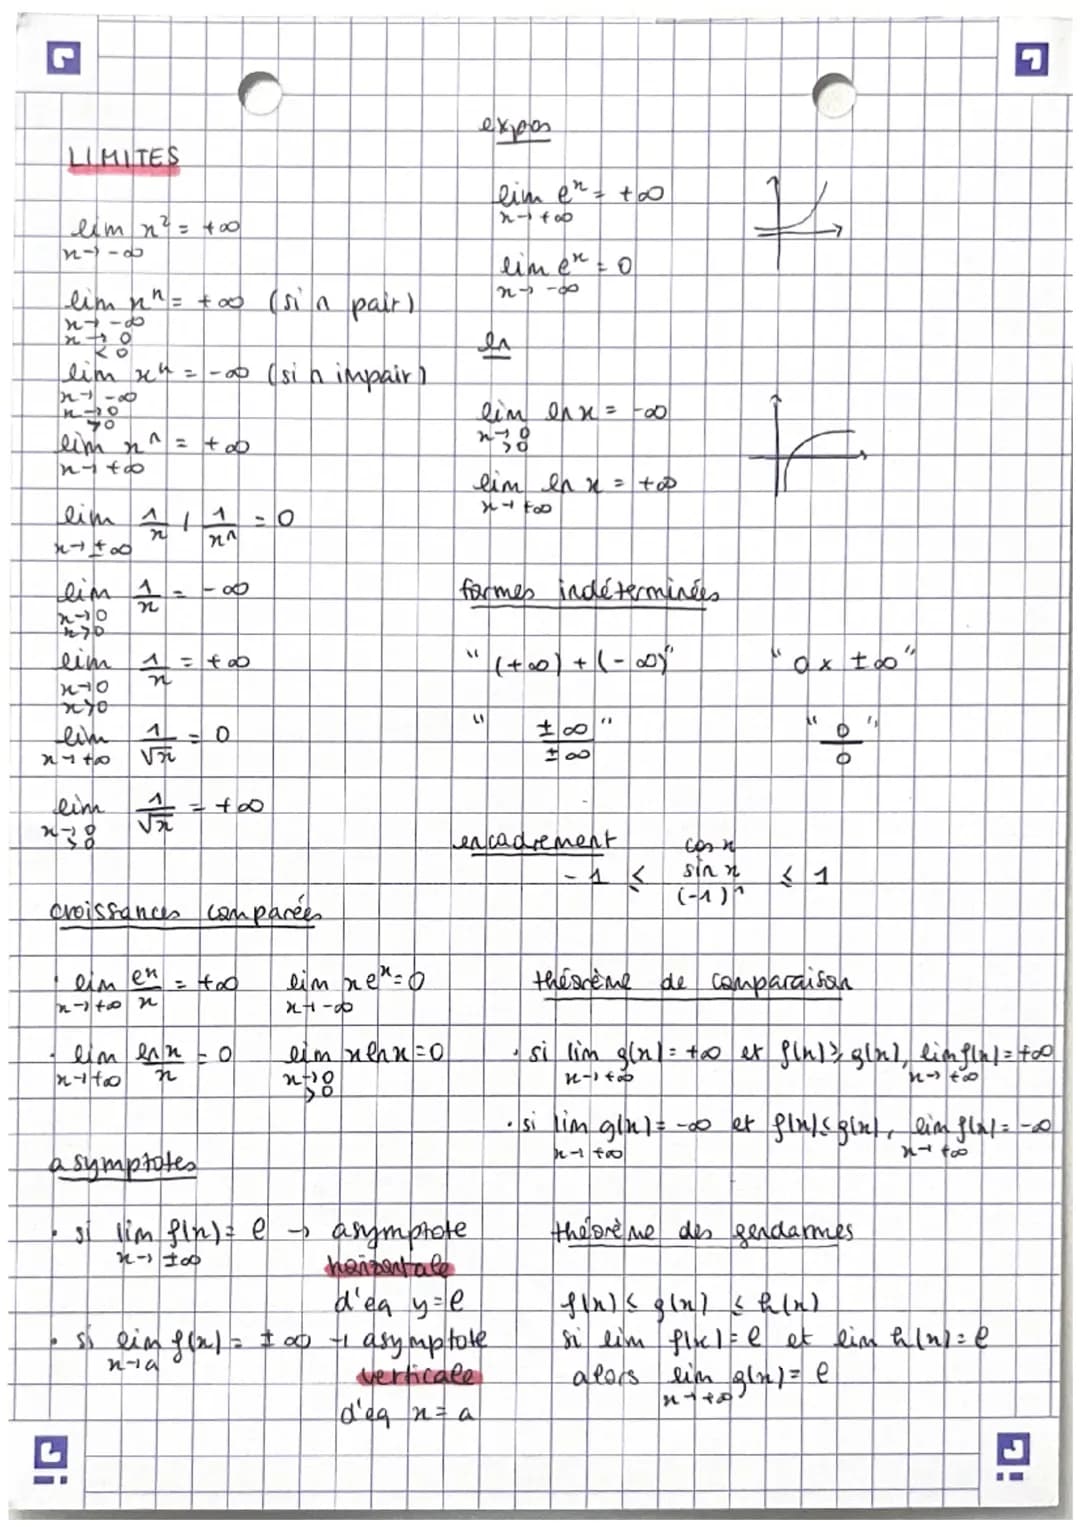 LIMITES
lim x² = +∞
x→-∞
lim xⁿ = +∞ (si n pair)
x→-∞
x→0
<0
lim xⁿ = -∞ (si n impair)
x→-∞
x→0
>0
lim xⁿ = +∞
x→+∞
lim 1/x / 1/xⁿ = 0
x→±∞
lim 1/x = -∞
x→0
x>0
lim 1/x = +∞
x→0
x>0
lim 1/√x = 0
x→+∞
lim 1/√x = +∞
x→0
>0
croissances comparées
• lim eˣ/x = +∞ lim xeˣ=0
x→+∞ x→-∞
• lim ln x/x = 0 lim x ln x=0
x→+∞ x→0
>0
asymptotes
• si lim f(x) = l → asymptote
x→±∞ horizontale
d'eq y=l
• si lim f(x) = ±∞ → asymptote
x→a verticale
d'eq x = a
expos
lim eˣ = +∞
x→+∞
lim eˣ = 0
x→-∞
ln
lim ln x = -∞
x→0
>0
lim ln x = +∞
x→+∞
formes indéterminées
"(+∞) + (-∞)" "0 x ±∞"
"±∞/±∞" "0/0"
encadrement cos x
-1 ≤ sin x ≤ 1
(-1)ⁿ
théorème de comparaison
• si lim g(x) = +∞ et f(x) ≥ g(x), lim f(x) = +∞
x→+∞ x→+∞
• si lim g(x) = -∞ et f(x) ≤ g(x), lim f(x) = -∞
x→+∞ x→+∞
théorème des gendarmes
f(x) ≤ g(x) ≤ h(x)
si lim f(x) = l et lim h(x) = l
alors lim g(x) = l
x→+∞